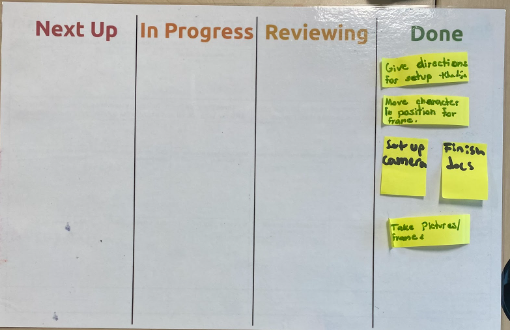 Next Up
In Progress
Reviewing
Done
Give directions
for setup
Move character
in position for
frame.
Set up
camera
Finish
docs
Take Pictures/
frames